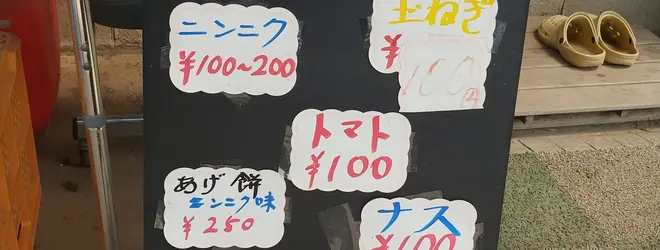 ニンニク
¥100~200
玉ねぎ
¥
100
トマト
¥100
あげ餅
ニンニク味
¥250
ナス
¥100